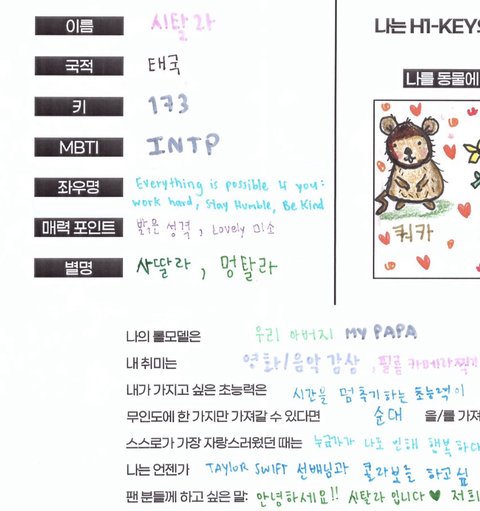 이름 시탈라
나는 H1-KEY의
국적 태국
나를 동물에
키 173
MBTI INTP
좌우명 Everything is possible 4 you:
work hard, Stay Humble, Be Kind
매력 포인트 밝은 성격, Lovely 미소
쿼카
별명 사딸라, 멍탈라
나의 롤모델은 우리 아버지 MY PAPA
내 취미는 영화/음악 감상, 필름 카메라 찍기
내가 가지고 싶은 초능력은 시간을 멈추기 하는 초능력이
무인도에 한 가지만 가져갈 수 있다면 순대 을/를 가져
스스로가 가장 자랑스러웠던 때는 누군가가 나로 인해 행복하다
나는 언젠가 TAYLOR SWIFT 선배님과 콜라보를 하고 싶
팬 분들께 하고 싶은 말: 안녕하세요!! 시탈라 입니다♥ 저희